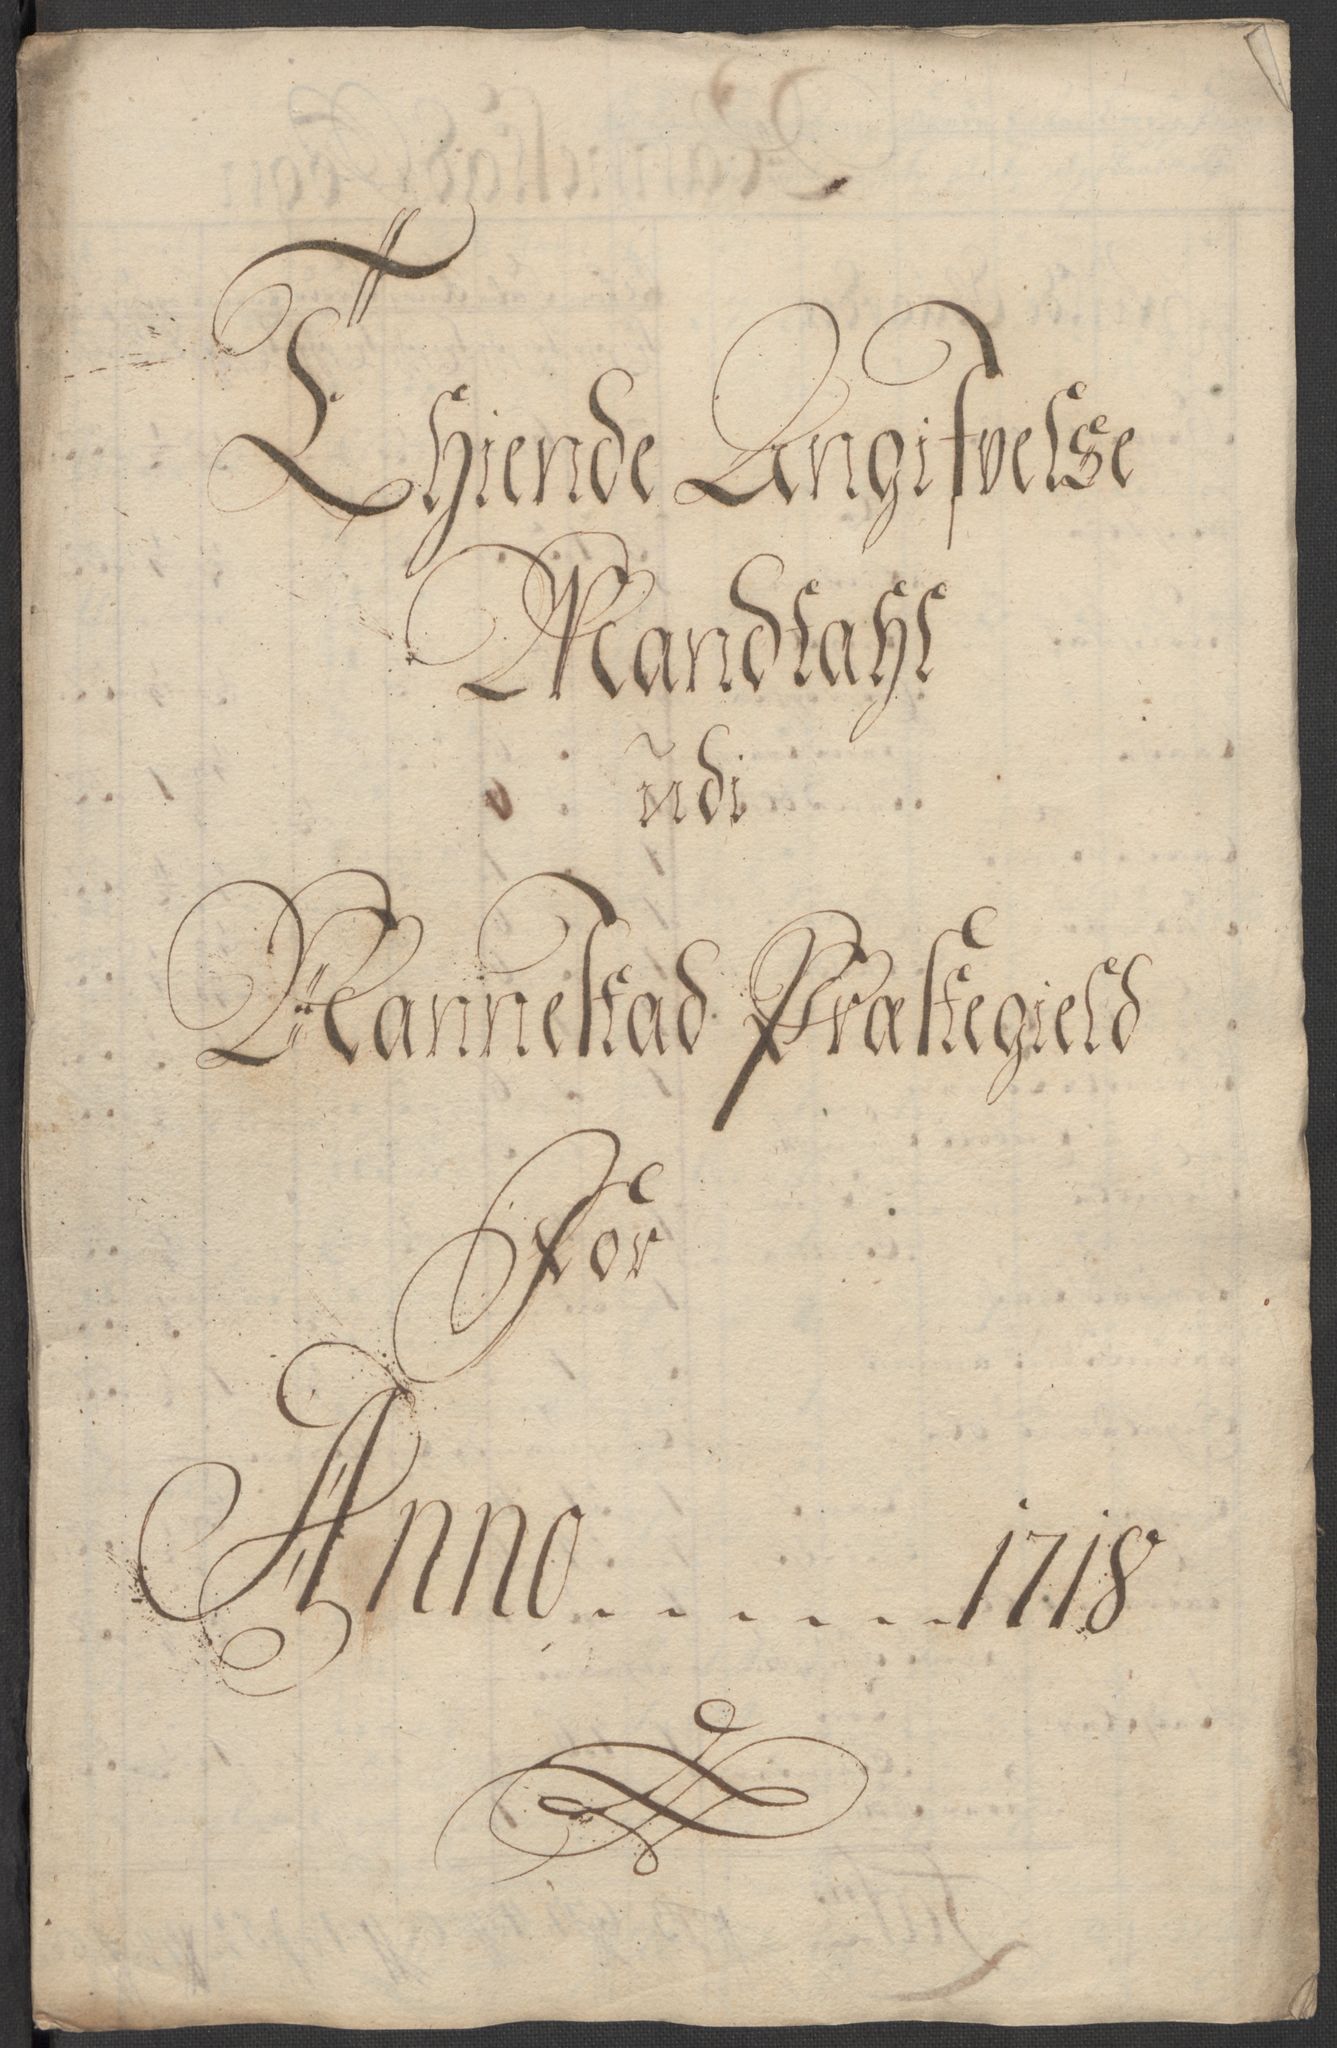 Thiende Angifvelse
Mandtahl
udi
Rannestad Præstegield
For
Anno . . . . . . 1718